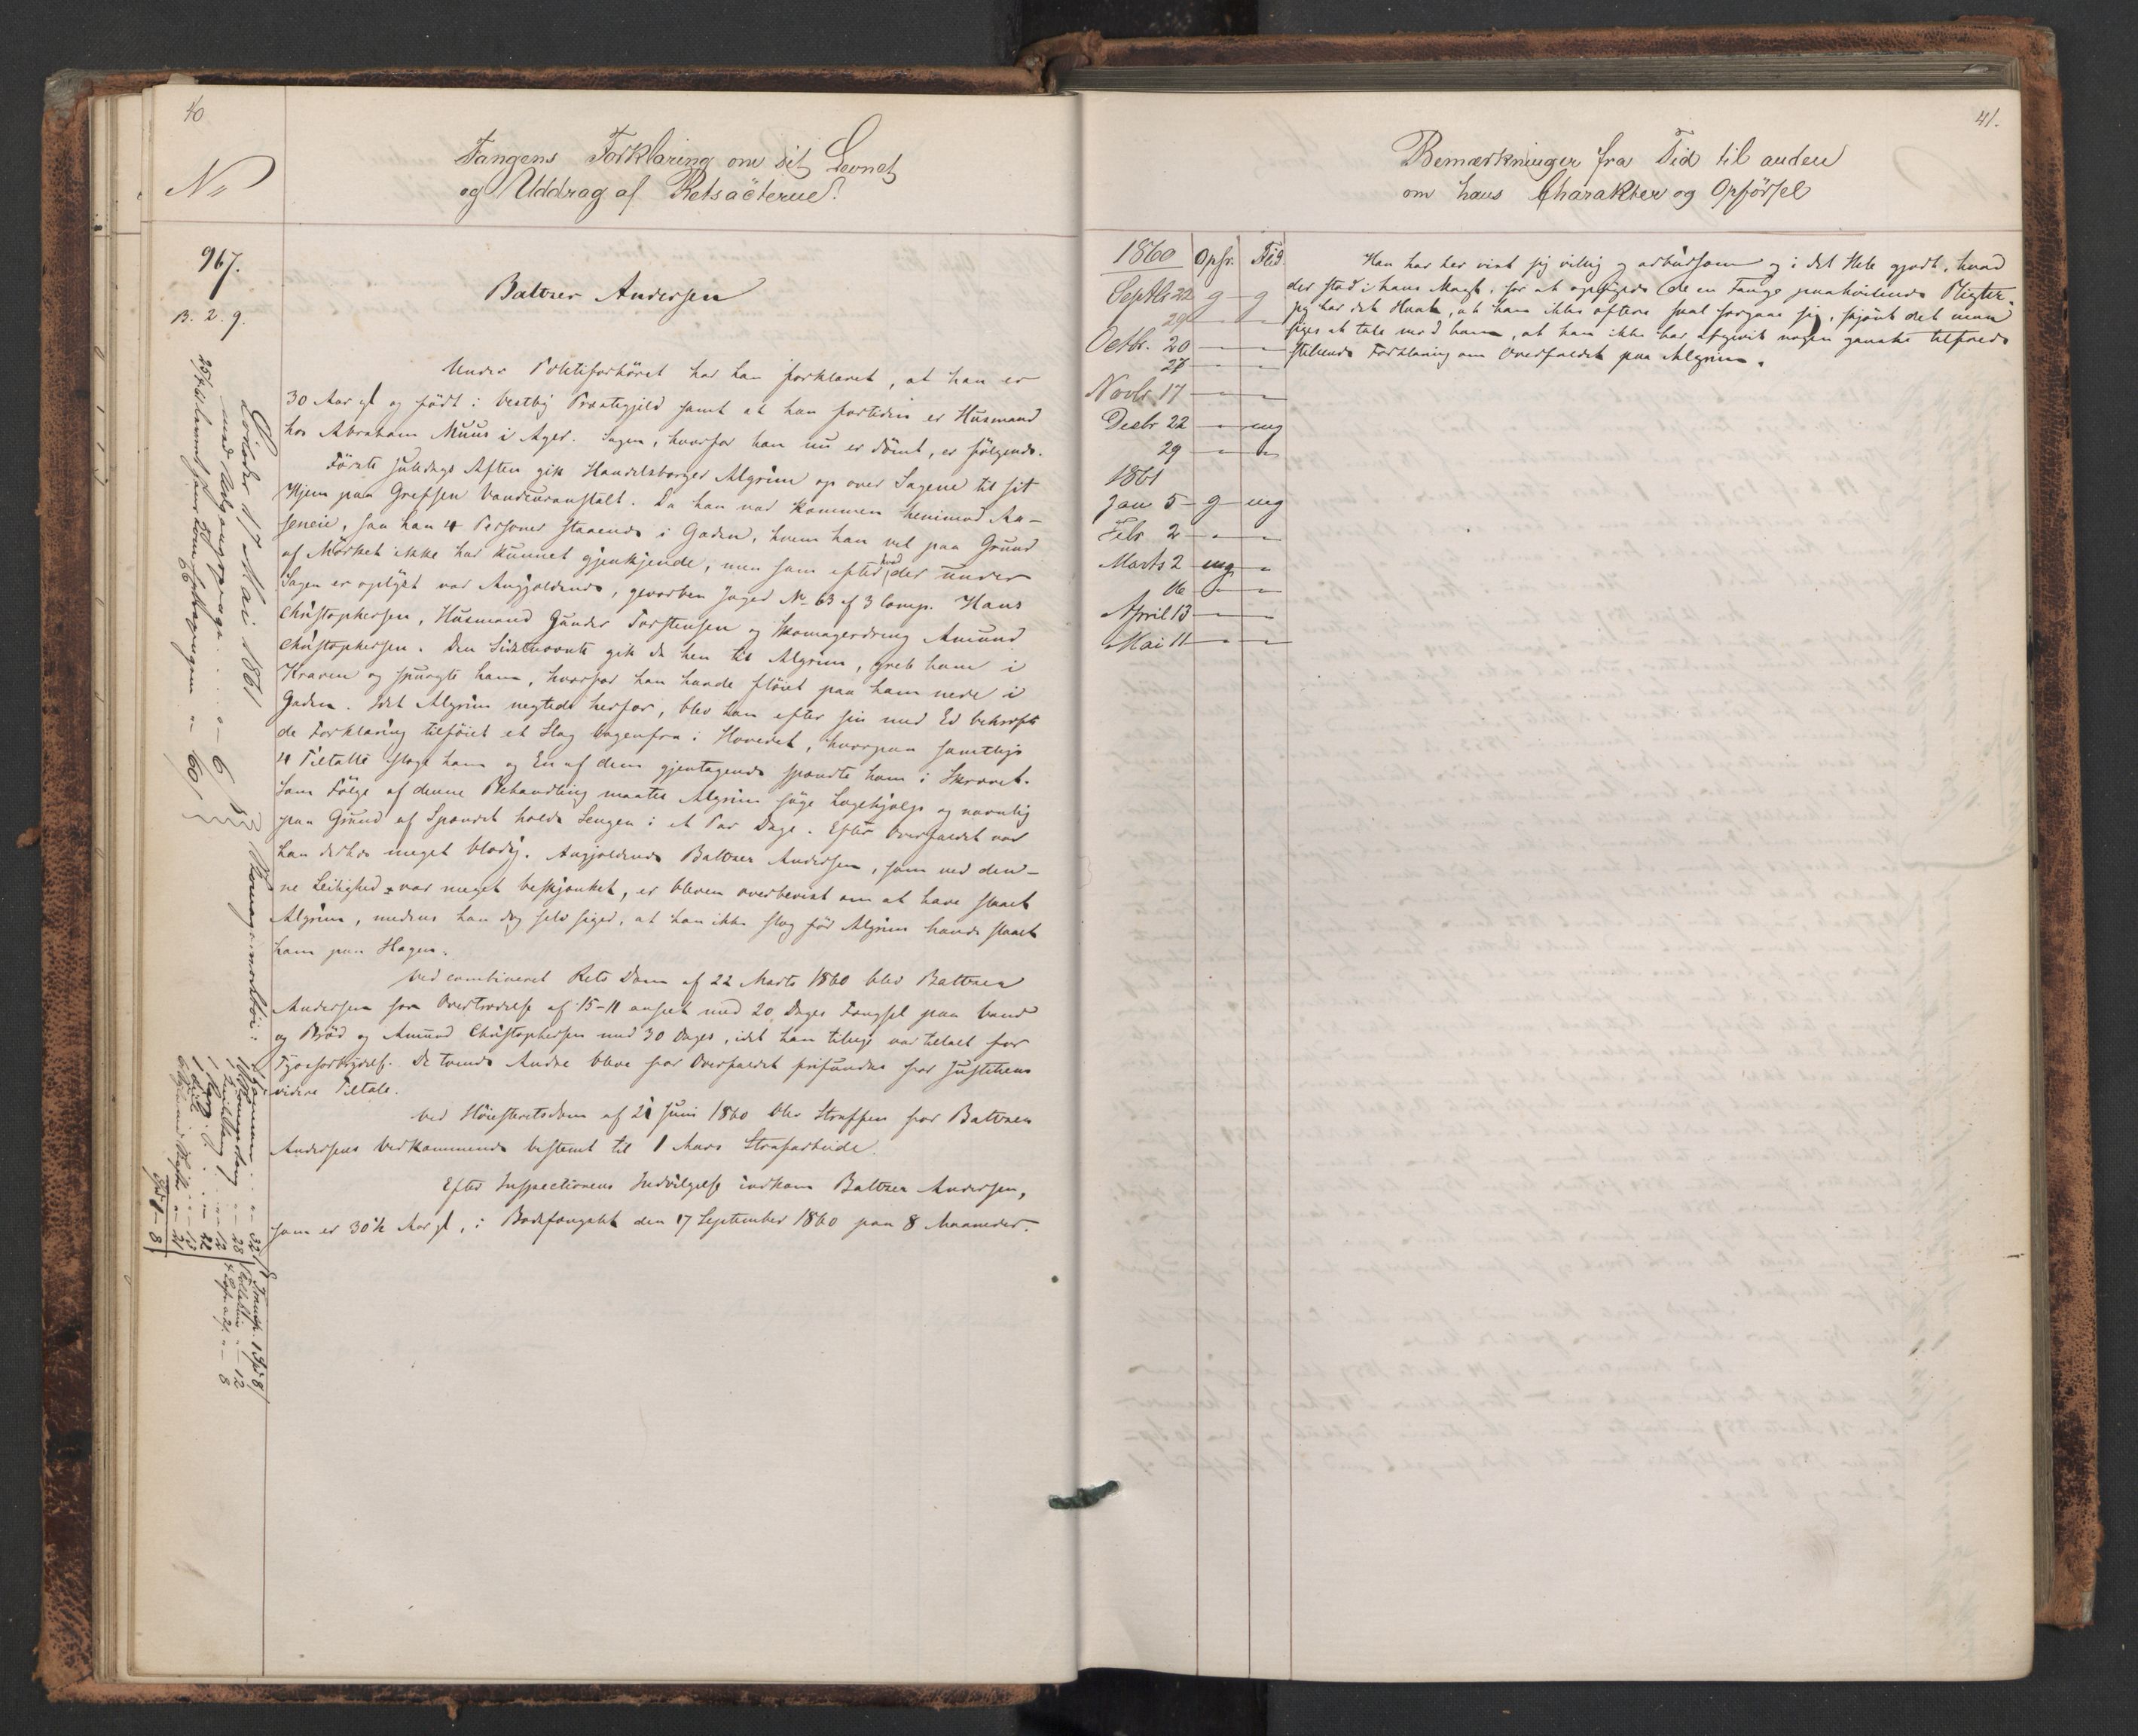 40
No
Fangens Forklaring om sit Levnet
og Uddrag af Retsacterne.
967.
B. 2. 9.
Baltzer Andersen
Under Politiforhöret har han forklaret, at han er
30 Aar gl og födt i Vestby Præstegjeld samt at han fortiden er Husmand
hos Abraham Muus i Ager. Sagen, hvorfor han nu er dömt, er fölgende.
Förste Juledags Aften gik Handelsborger Algrim op over Sagene til sit
Hjem paa Grefsen Vandcuranstalt. Da han var kommen henimod Aa-
seneie, saa han 4 Personer staaende i Gaden, hvem han vel paa Grund
af Mörket ikke har kunnet gjenkjende, men som efter hvad der under
Sagen er oplyst var Angjældende, gevorben Jæger No 63 af 3 Comp. Hans
Christophersen, Husmand Gunder Torstensen og Skomagerdreng Amund
Christophersen. Den Sidstnævnte gik da hen til Algrim, greb ham i
Kraven og spurgte ham, hvorfor han havde flöiet paa ham nede i
Gaden. Idet Algrim negtede herfor, blev han efter sin med Ed bekræfte-
de Forklaring tilföiet et Slag bagenfra i Hovedet, hvorpaa samtlige
4 Tiltalte sloge ham og En af dem gjentagende spændte ham i Skrævet.
Som Fölge af denne Behandling maatte Algrim söge Lægehjælp og navnlig
paa Grund af Spændet holde Sengen i et Par Dage. Efter Overfaldet var
han derhos meget blodig. Angjældende Baltzer Andersen, som ved den-
ne Leilighed var meget beskjænket, er bleven overbevist om at have slaaet
Algrim, medens han dog selv siger, at han ikke slog för Algrim havde slaaet
ham paa Hagen.
Ved combineret Rets Dom af 22 Marts 1860 blev Baltzer
Andersen for Overtrædelse af 15-11 anseet med 20 Dages Fængsel paa Vand
og Bröd og Amund Christophersen med 30 Dages, idet han tillige var tiltalt for
Tyveforbrydelse. De tvende Andre bleve for Overfaldet frifundne for Justitiens
videre Tiltale.
Ved Höiesteretsdom af 21 Juni 1860 blev Straffen for Baltzer
Andersens Vedkommende bestemt til 1 Aars Strafarbeide.
Efter Inspectionens Indvilgelse indkom Baltzer Andersen,
som er 30½ Aar gl, i Bodsfængslet den 17 September 1860 paa 8 Maaneder.
Löslades 17 Mai 1861
med Udgangspenge
41.
Bemærkninger fra Tid til anden
om hans Charakter og Opförsel
1860 Opfr. Flid.
Septbr 22 g g
29 " "
Octbr. 20 " "
27 " "
Novbr. 17 " "
Decbr 22 " mg
29 " "
1861
Jan 5 g mg
Febr 2 " "
Marts 2 mg "
16 " "
April 13 " "
Mai 11 " "
Han har her viist sig villig og arbeidsom og i det Hele gjort, hvad
der stod i hans Magt, for at opfylde de en Fange paahvilende Pligter.
Jeg har det Haab, at han ikke oftere skal forgaae sig, skjönt det maa
siges at tale mod ham, at han ikke har afgivet nogen ganske tilfreds
stillende Forklaring om Overfaldet paa Algrim.